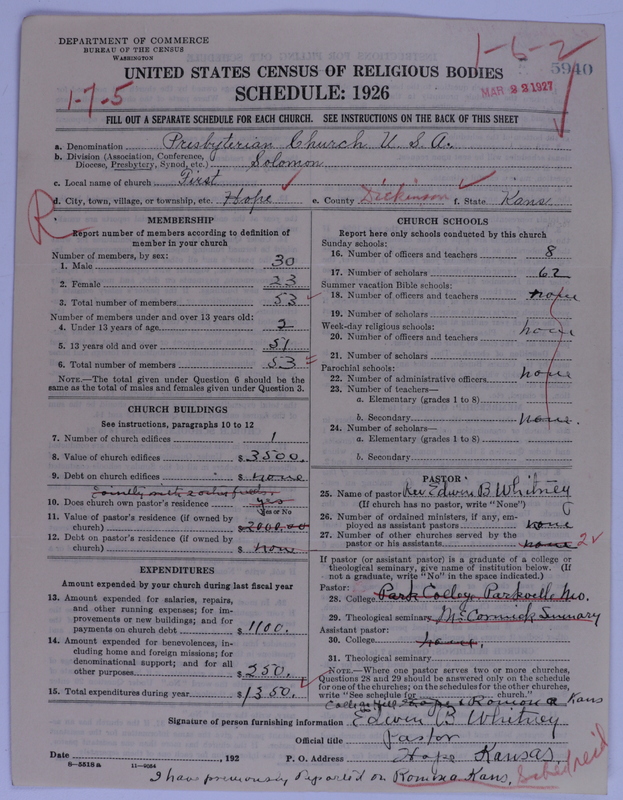 DEPARTMENT OF COMMERCE
BUREAU OF THE CENSUS
WASHINGTON
1-6-2
5940
UNITED STATES CENSUS OF RELIGIOUS BODIES
MAR 22 1927
1-7-5
SCHEDULE: 1926
FILL OUT A SEPARATE SCHEDULE FOR EACH CHURCH. SEE INSTRUCTIONS ON THE BACK OF THIS SHEET
a. Denomination Presbyterian Church U. S. A.
b. Division (Association, Conference, Diocese, Presbytery, Synod, etc.) Solomon
c. Local name of church First
d. City, town, village, or township, etc. Hope e. County Dickinson f. State Kans
R
MEMBERSHIP
Report number of members according to definition of
member in your church
Number of members, by sex:
1. Male 30
2. Female 23
3. Total number of members 53
Number of members under and over 13 years old:
4. Under 13 years of age 2
5. 13 years old and over 51
6. Total number of members 53
NOTE.—The total given under Question 6 should be the
same as the total of males and females given under Question 3.
CHURCH BUILDINGS
See instructions, paragraphs 10 to 12
7. Number of church edifices 1
8. Value of church edifices $ 3500.
9. Debt on church edifices $ none
10. Does church own pastor's residence yes
Yes or No
11. Value of pastor's residence (if owned by
church) $ 2000.00
12. Debt on pastor's residence (if owned by
church) $ none
EXPENDITURES
Amount expended by your church during last fiscal year
13. Amount expended for salaries, repairs,
and other running expenses; for im-
provements or new buildings; and for
payments on church debt $ 1100.
14. Amount expended for benevolences, in-
cluding home and foreign missions; for
denominational support; and for all
other purposes $ 250.
15. Total expenditures during year $ 1350.
CHURCH SCHOOLS
Report here only schools conducted by this church
Sunday schools:
16. Number of officers and teachers 8
17. Number of scholars 62
Summer vacation Bible schools:
18. Number of officers and teachers none
19. Number of scholars
Week-day religious schools: none
20. Number of officers and teachers
21. Number of scholars
Parochial schools: none
22. Number of administrative officers
23. Number of teachers—
a. Elementary (grades 1 to 8)
b. Secondary none.
24. Number of scholars—
a. Elementary (grades 1 to 8)
b. Secondary
PASTOR
25. Name of pastor Rev Edwin B Whitney
(If church has no pastor, write "None")
26. Number of ordained ministers, if any, em-
ployed as assistant pastors none
27. Number of other churches served by the
pastor or his assistants none 2
If pastor (or assistant pastor) is a graduate of a college or
theological seminary, give name of institution below. (If
not a graduate, write "No" in the space indicated.)
Pastor:
28. College Park College Parkville Mo.
29. Theological seminary McCormick Seminary
Assistant pastor:
30. College none.
31. Theological seminary
NOTE.—Where one pastor serves two or more churches,
Questions 28 and 29 should be answered only on the schedule
for one of the churches; on the schedules for the other churches,
write "See schedule for church."
College Hill Hope & Romona Kans
Signature of person furnishing information Edwin B Whitney
Official title Pastor
Date , 192 P. O. Address Hope Kansas.
8-5518a 11-9054
I have previously reported on Romona Kans,